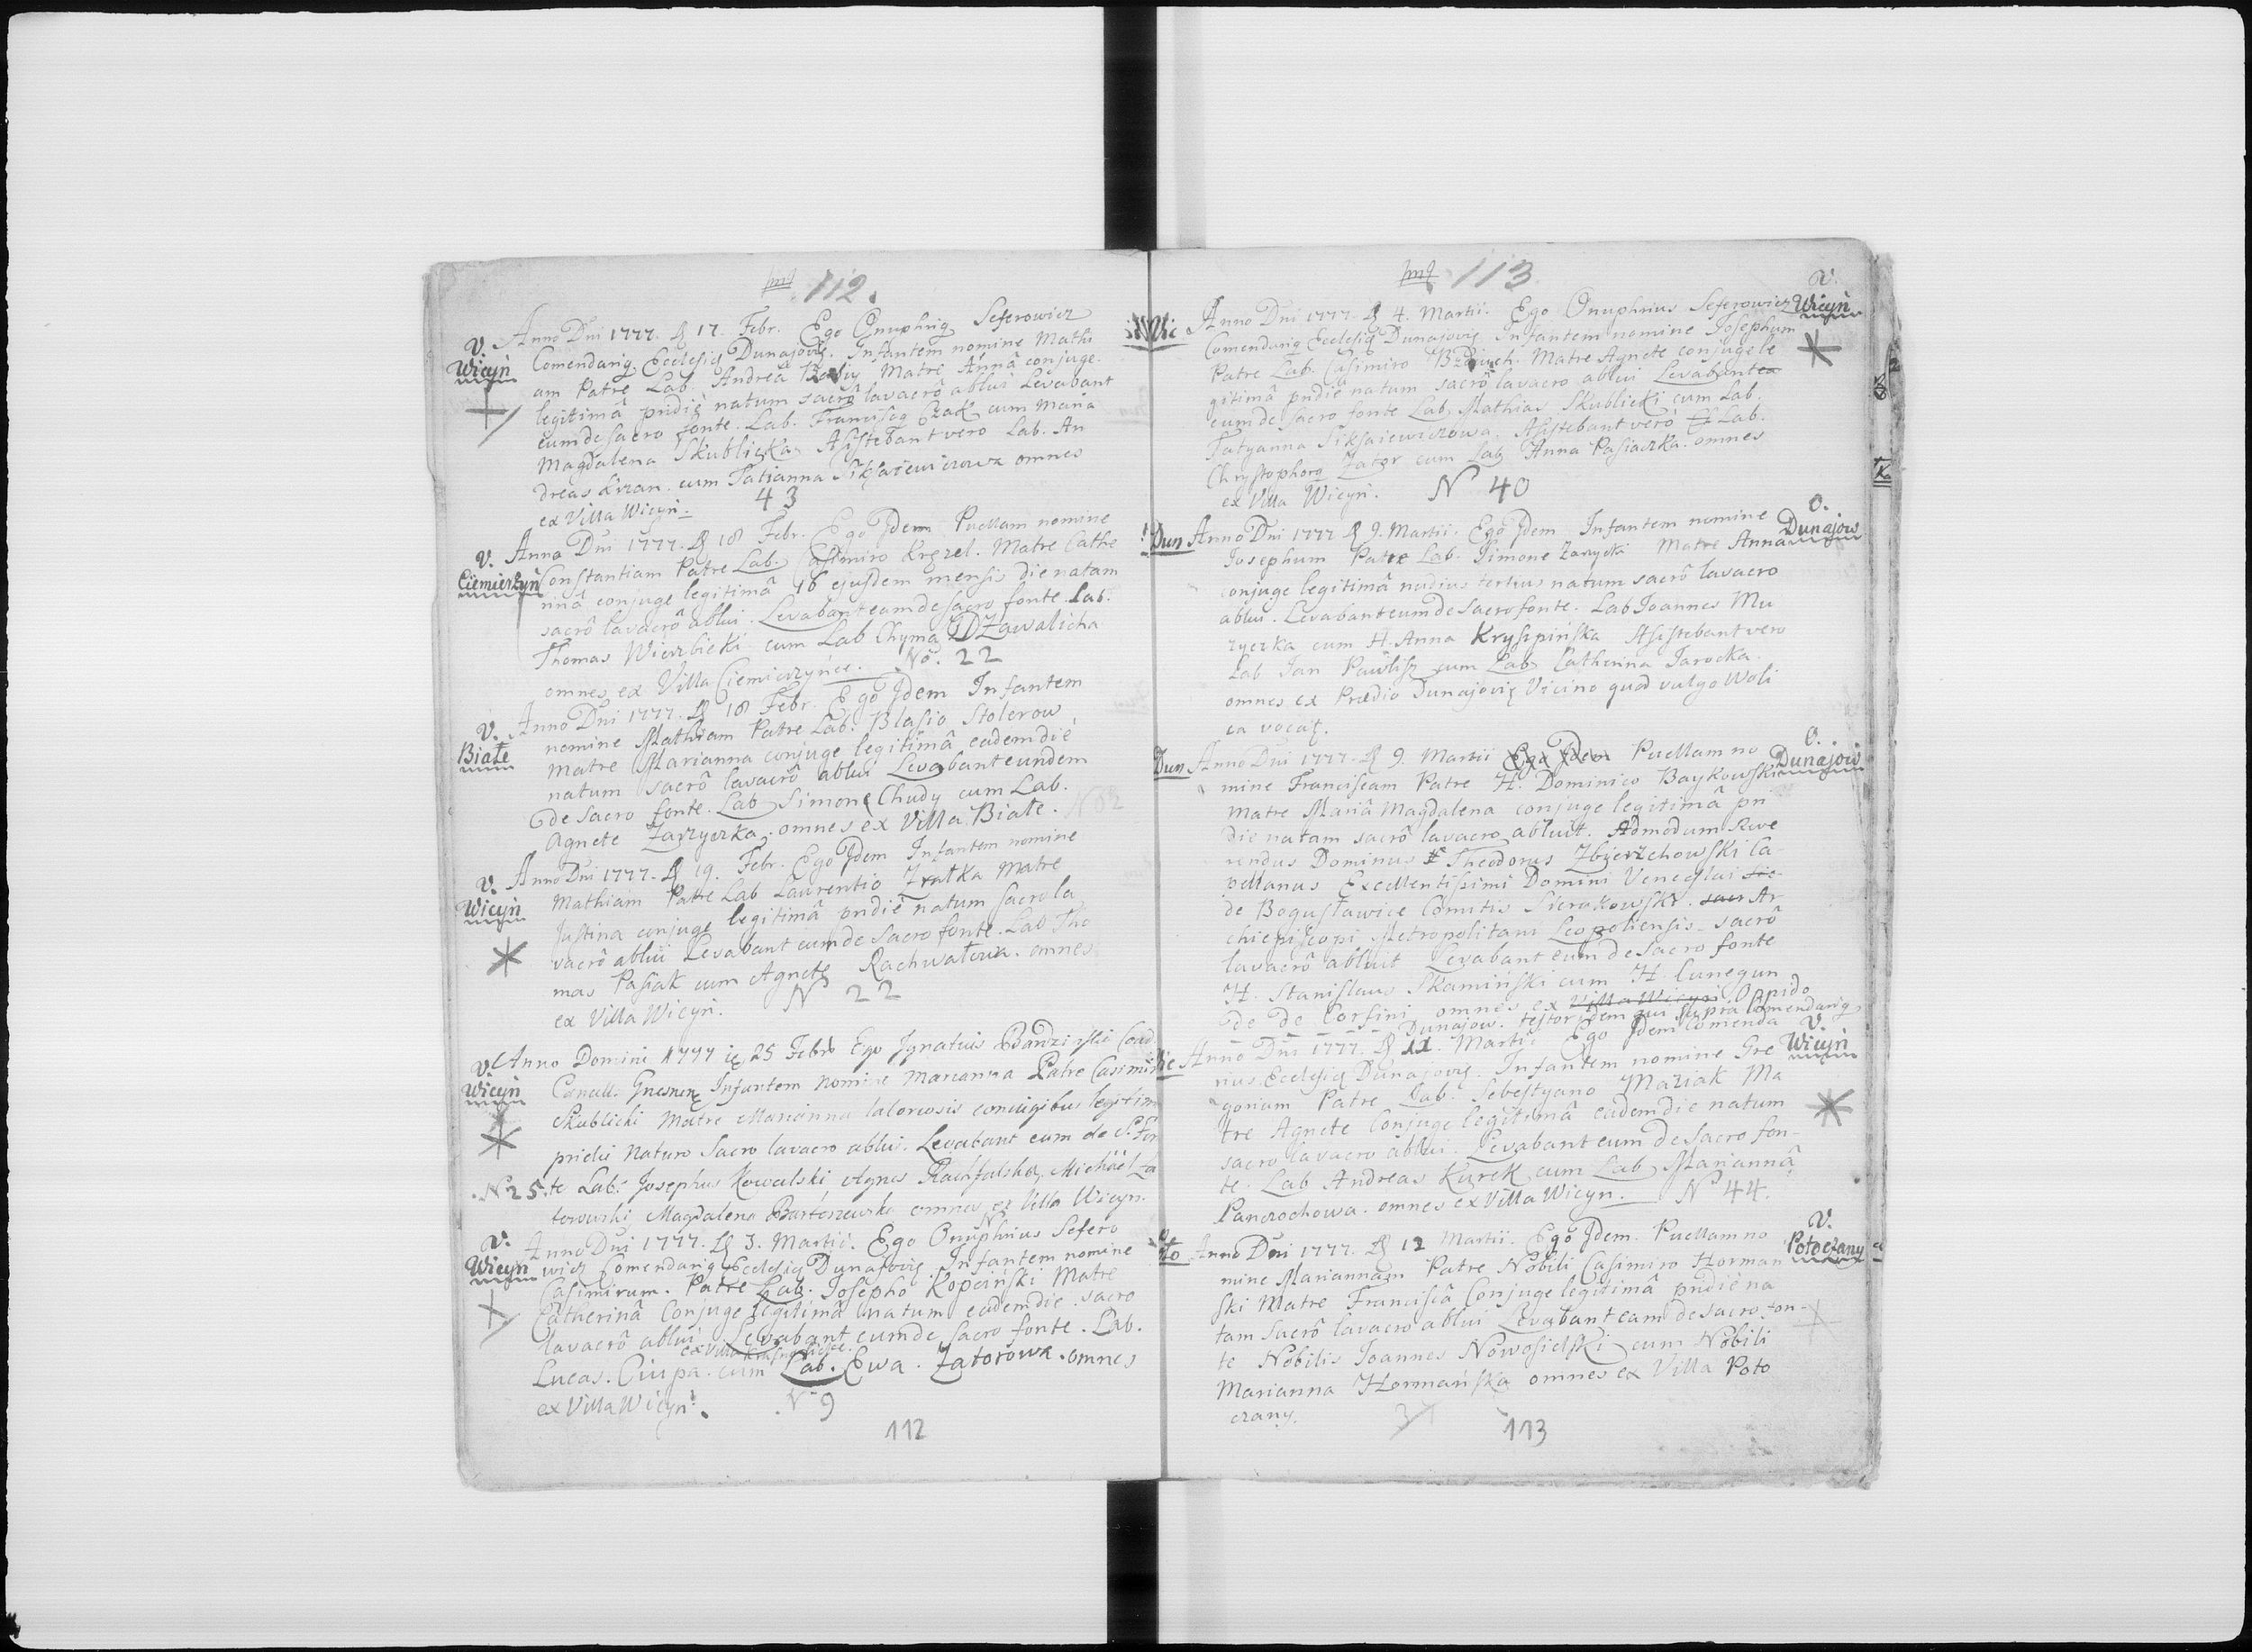 112.
V.
Wicyń
Anno Dni 1777. D 17. Febr. Ego Onuphrig Seferowicz
Comendarig Ecclesię Dunajovię. Infantem nomine Mathi
am Patre Lab. Andreâ Matre Annâ conjuge
legitimâ pridiè natum sacrô lavacrô ablui Levabant
eum de sacro fonte. Lab. Franciscg Czak cum Maria
Magdalena Skublicka Assistebant vero Lab. An
dreas cum Tatianna Siksaiewiczowa omnes
ex Villa Wicyń.
43
V.
Ciemierzyń
Anno Dni 1777. D 18 Febr. Ego Jdem Puellam nomine
Constantiam Patre Lab. Casimiro Kręzel. Matre Cathe
rinâ conjuge legitimâ 16 ejusdem mensis die natam
sacrô lavacrô ablui. Levabant eam de sacro fonte. Lab.
Thomas Wierzbicki cum Lab Chyma DZawalicha
omnes ex Villa Ciemierzyńce. No. 22
V.
Białe
Anno Dni 1777. D 18 Febr. Ego Jdem Infantem
nomine Mathiam Patre Lab. Blasio Stolerow
Matre Marianna conjuge legitimâ eadem diè
natum sacrô lavacrô ablui Levabant eundem
de sacro fonte. Lab Simone Chudy cum Lab.
Agnete Zarzyczka. omnes ex Villa Białe. No2
V.
Wicyń
Anno Dni 1777. D 19. Febr. Ego Jdem Infantem nomine
Mathiam Patre Lab Laurentio Zratka Matre
Justina conjuge legitimâ pridiè natum sacro la
vacrô ablui Levabant eum de sacro fonte. Lab Tho
mas Pasiak cum Agnete Rachwałowa. omnes
ex Villa Wicyń. N 22
V.
Wicyń
Anno Domini 1777 25 Febr Ego Ignatius
Gnesnen Infantem nomine Marianna Patre Casimiro
Skublicki Matre Marianna laboriosis conjugibus legitim
pridie natum Sacro lavacro ablui. Levabant eum de S. Fon
N 25. te Lab. Josephus Kowalski Agnes Michael Za
torowski Magdalena omnes ex Villa Wicyn.
V.
Wicyn
Anno Dni 1777. D 3. Martii. Ego Onuphrius Sefero
wicz Comendarig Ecclesię Dunajovię. Infantem nomine
Casimirum. Patre Lab. Josepho Kopciński Matre
Catherinâ Conjuge legitimâ natum eadem die sacro
lavacrô ablui. Levabant eum de sacro fonte. Lab.
ex Villa
Lucas. Ciupa. cum Lab. Ewa. Zatorowa. omnes
ex Villa Wicyn.
N 9
112
113
V.
Wicyń
Anno Dni 1777. D 4. Martii. Ego Onuphrius Seferowicz
Comendarig Ecclesię Dunajovię Infantem nomine Josephum
Patre Lab. Casimiro Matre Agnete conjuge le
gitimâ pridiè natum sacrô lavacro ablui Levabant
eum de sacro fonte Lab Mathias Skublicki cum Lab.
Tatyanna Siksaiewiczowa. Assistebant verò Lab.
Chrystophorg Zator cum Lab Anna Pasiaczka. omnes
ex Villa Wicyń. N 40
Dun
O.
Dunajow
Anno Dni 1777 D 9. Martii. Ego Jdem Infantem nomine
Josephum Patre Lab. Simone Zarycki Matre Anna
conjuge legitimâ nudius tertius natum sacrô lavacro
ablui. Levabant eum de sacro fonte. Lab Joannes Mu
rzyczka cum H. Anna Kryspińska Assistebant vero
Lab Jan Pawlisz cum Lab Catherina Jarocka.
omnes ex Prædio Dunajovię Vicino quod vulgo Woli
ca vocat.
Dun
O.
Dunajow
Anno Dni 1777. D 9. Martii Ego Jdem Puellam no
mine Franciscam Patre H. Dominico Baykowski
Matre Mariâ Magdalena conjuge legitimâ pri
die natam sacrô lavacro abluit. Admodum Reve
rendus Dominus Theodorus Zbyerzchowski Ca
pellanus Excellentissimi Domini Venceslai
de Bogusławice Comitis Sierakowski. Ar
chiepiscopi Metropolitani Leopoliensis sacrô
lavacrô abluit Levabant eum de sacro fonte
H. Stanislaus Skamiński cum H. Cunegun
de de Corsini omnes ex Villa Wicyn Oppido
Dunajow. testor Idem qui supra Comendarig
V.
Wicyń
Anno Dni 1777. D 11. Martii Ego Jdem Comenda
rius Ecclesię Dunajovię. Infantem nomine Gre
gorium Patre Lab. Sebestyano Maziak Ma
tre Agnete Conjuge legitimâ eadem die natum
sacro lavacro ablui. Levabant eum de sacro fon-
te. Lab Andreas Kurek cum Lab Mariannâ
Panczochowa. omnes ex Villa Wicyn. N 44.
V.
Potoczany
Anno Dni 1777. D 12 Martii. Ego Jdem. Puellam no
mine Mariannam Patre Nobili Casimiro Horman
ski Matre Franciscâ Conjuge legitimâ pridiè na
tam sacrô lavacro ablui Levabant eam de sacro fon-
te Nobilis Joannes Nowosielski cum Nobili
Marianna Hormańska omnes ex Villa Poto
czany.
113